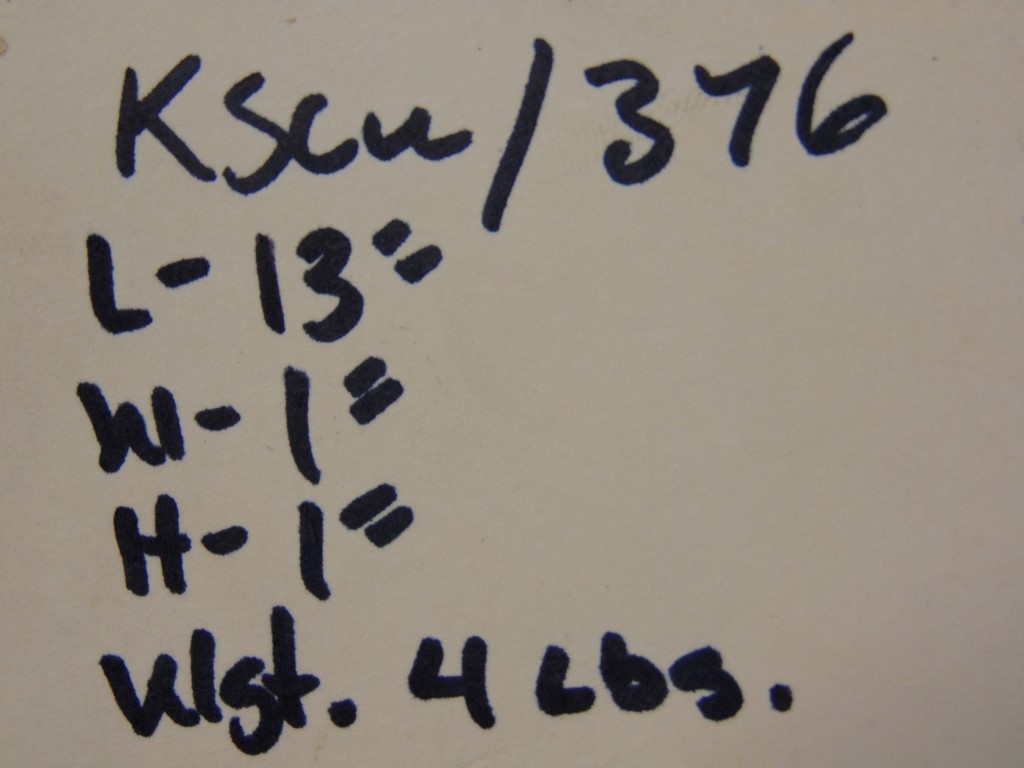 Kscu/376
L- 13"
W- 1"
H- 1"
Wgt. 4 Lbs.